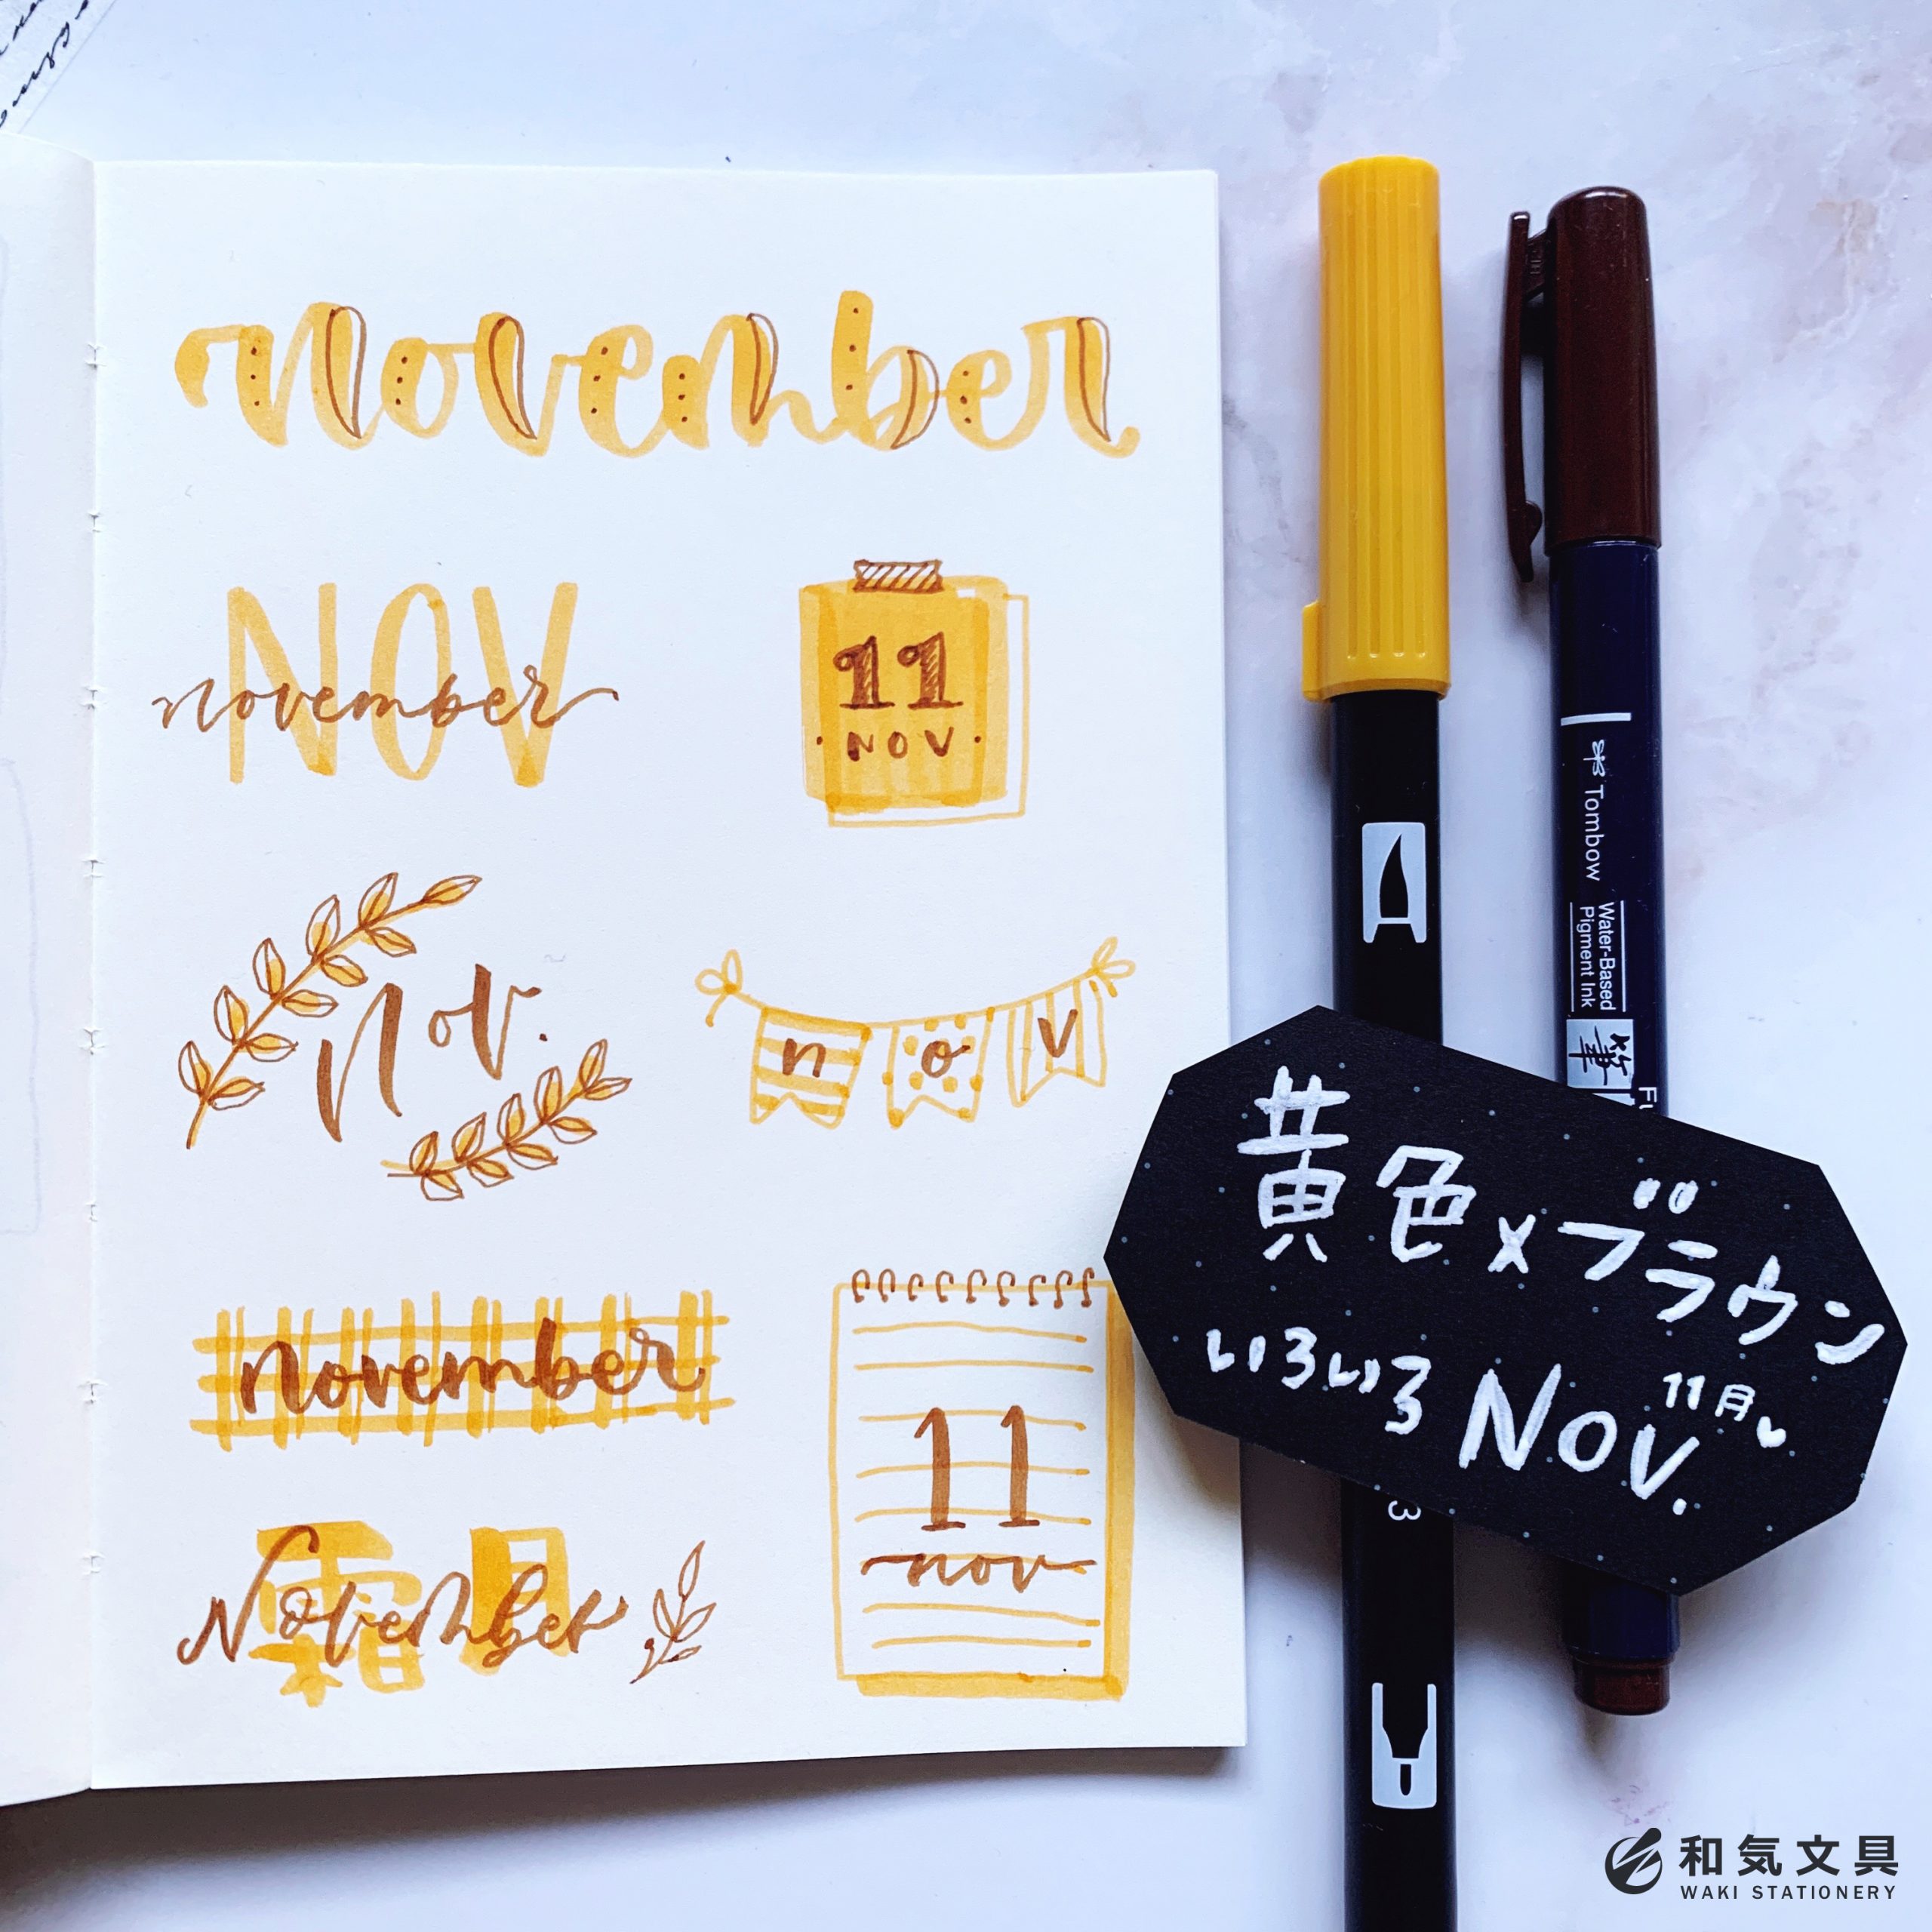 november
NOV
november
11
NOV
Nov.
nov
november
11
nov
霜月
November
Tombow
Water-Based
Pigment Ink
筆
黄色×ブラウン
いろいろ Nov.
11月
3
和気文具
WAKI STATIONERY